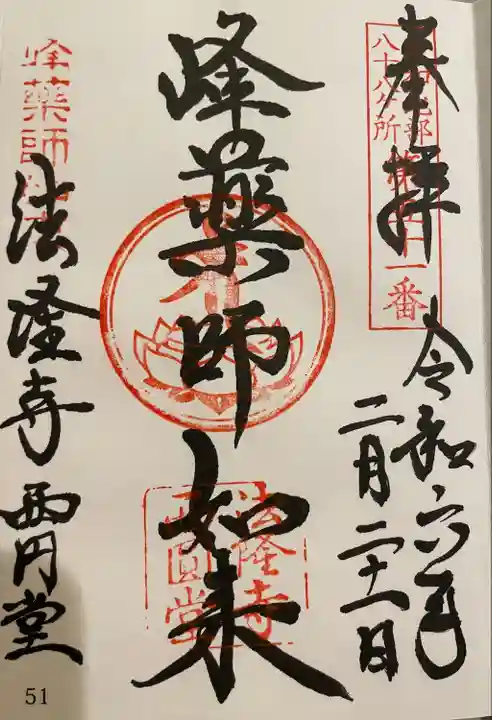 奉拝
八十八ヶ所
一番
令和六年
二月二十一日
峰薬師如来
法隆寺
西圓堂
峰薬師
法隆寺 西円堂
51